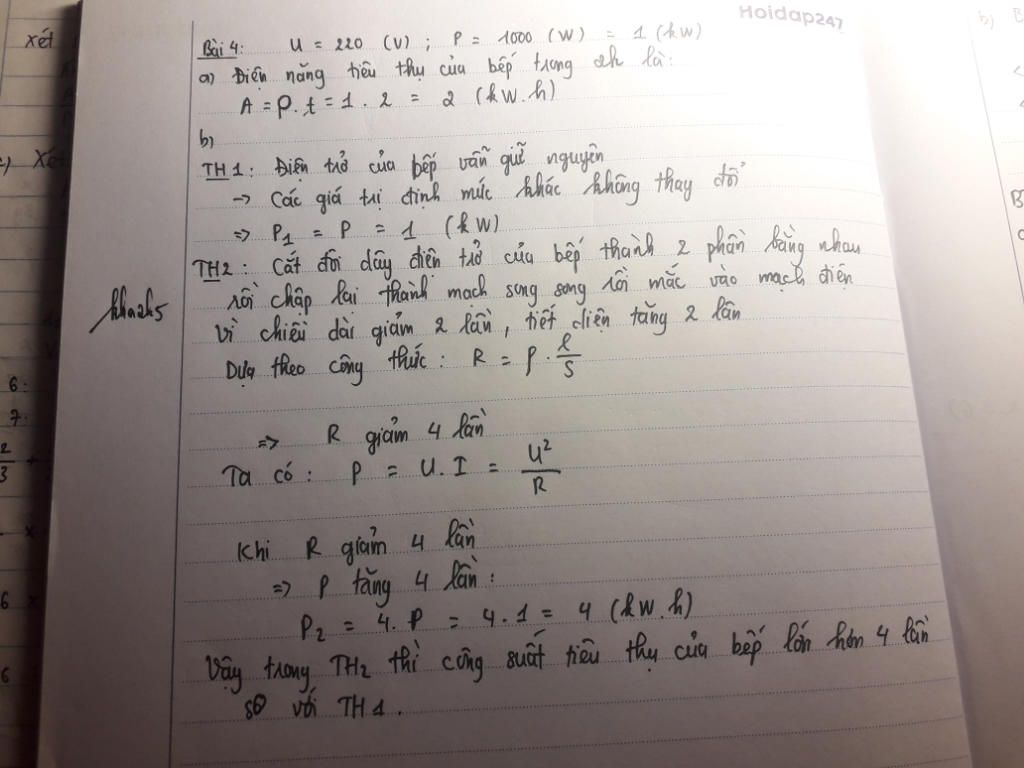 Hoidap247
Bài 4: U = 220 (V) ; P = 1000 (W) = 1 (kW)
a) Điện năng tiêu thụ của bếp trong 2h là:
A = P. t = 1 . 2 = 2 (kW.h)
b)
TH1: Điện trở của bếp vẫn giữ nguyên
→ Các giá trị định mức khác không thay đổi
=> P1 = P = 1 (kW)
TH2: Cắt đôi dây điện trở của bếp thành 2 phần bằng nhau
rồi chập lại thành mạch song song rồi mắc vào mạch điện
khahh5
Vì chiều dài giảm 2 lần, tiết diện tăng 2 lần
Dựa theo công thức: R = ρ . l/S
=> R giảm 4 lần
Ta có: P = U. I = U²/R
Khi R giảm 4 lần
=> P tăng 4 lần:
P2 = 4. P = 4 . 1 = 4 (kW.h)
Vậy trong TH2 thì công suất tiêu thụ của bếp lớn hơn 4 lần
so với TH1.
xét
c) Xét
6:
7:
2/3
6 x
6
b)
B